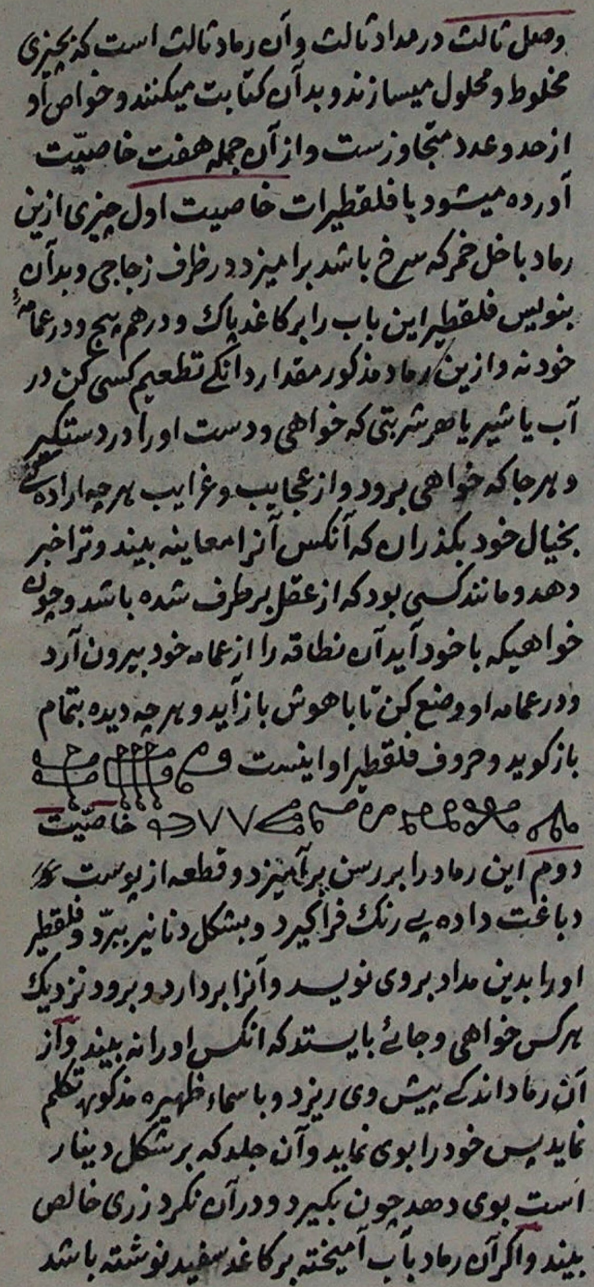 وصل ثالث در مداد ثالث وآن رماد ثالث است که بچیزی
مخلوط و محلول میسازند و بدآن کتابت میکنند و خواص آو
از حد و عدد متجاوزست و از آن جمله هفت خاصیّت
آورده میشود با فلقطیرات خاصیت اول چیزی ازین
رماد با خل خمر که سرخ باشد برامیزد و در ظرف زجاجی و بدآن
بنویس فلقطیر این باب را بر کاغد پاک و درهم پیچ و در عمامهٔ
خود نه و ازین رماد مذکور مقدار دانکے تطعیم کسی کن در
آب یا شیر یا هر شربتی که خواهی و دست او را در دست کیر
و بهر جا که خواهی برود و از عجایب و غرایب بهر چه اراده
بخیال خود بکذران که آنکس آنرا معاینه بیند و ترا خبر
دهد و مانند کسی بود که از عقل برطرف شده باشد و چون
خواهیکه با خود آید آن نطاقه را از عمامه خود بیرون آرد
و در عمامه او وضع کن تا با هوش باز آید و بهر چه دیده بتمام
باز کوید و حروف فلقطیر او اینست
خاصیّت
دوم این رماد را بر رسن برآمیزد و قطعه از پوست
دباغت داده بی رنک فرا کیرد و بشکل دنانیر ببرّد و فلقطیر
او را بدین مداد بر وی نویسد و آنرا بردارد و برود نزدیک
هرکس خواهی و جائے بایستد که انکس او را نه بیند و از
آن رماد اندکے پیش وی ریزد و باسماء ظهیره مذکوره تکلم
نماید پس خود را بوی نماید و آن جلد که بر شکل دینار
است بوی دهد چون بکیرد و در آن نکرد زری خالص
بیند و اکر آن رماد بآب آمیخته بر کاغد سفید نوشته باشد